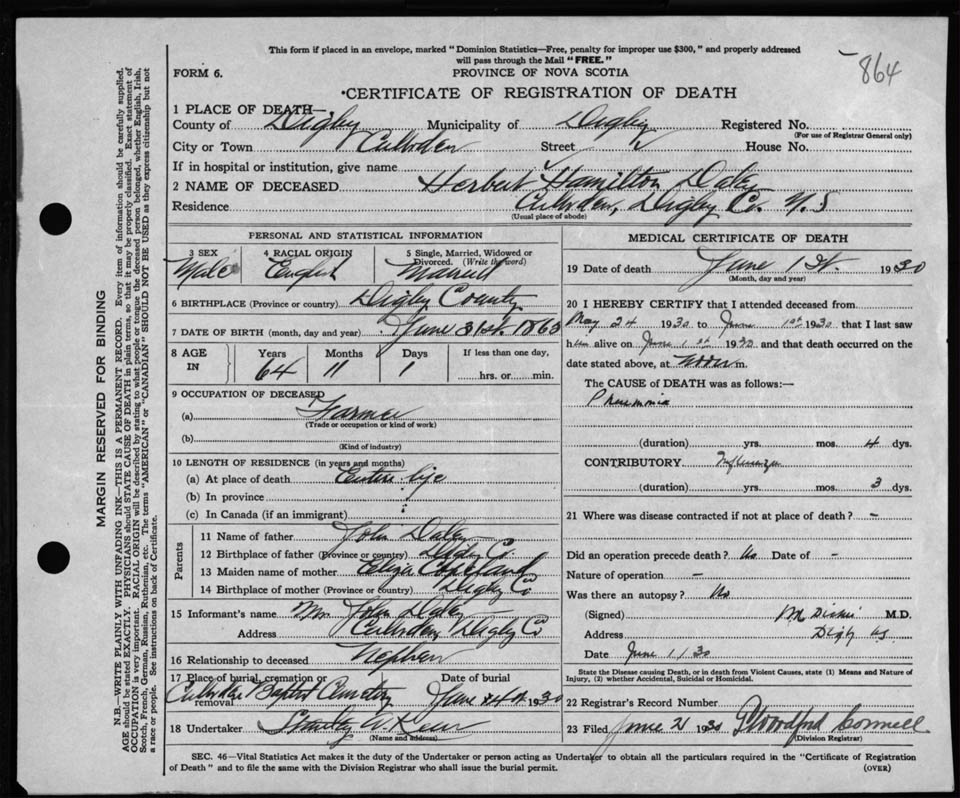 This form if placed in an envelope, marked "Dominion Statistics—Free, penalty for improper use $300," and properly addressed
will pass through the Mail "FREE."
864
FORM 6.
PROVINCE OF NOVA SCOTIA
CERTIFICATE OF REGISTRATION OF DEATH
1 PLACE OF DEATH—
County of Digby Municipality of Digby Registered No.
(For use of Registrar General only)
City or Town Culloden Street House No.
If in hospital or institution, give name
2 NAME OF DECEASED Herbert Hamilton Daley
Residence Culloden, Digby Co. N.S
(Usual place of abode)
PERSONAL AND STATISTICAL INFORMATION
3 SEX 4 RACIAL ORIGIN 5 Single, Married, Widowed or
Divorced. (Write the word)
Male English Married
6 BIRTHPLACE (Province or country) Digby County
7 DATE OF BIRTH (month, day and year) June 31st. 1865
8 AGE IN Years Months Days If less than one day,
64 11 1 hrs. or min.
9 OCCUPATION OF DECEASED
(a) Farmer
(Trade or occupation or kind of work)
(b)
(Kind of industry)
10 LENGTH OF RESIDENCE (in years and months)
(a) At place of death Entire life
(b) In province
(c) In Canada (if an immigrant)
Parents
11 Name of father John Daley
12 Birthplace of father (Province or country) Digby Co.
13 Maiden name of mother Eliza Copeland
14 Birthplace of mother (Province or country) Digby Co
15 Informant's name Mr. John Daley
Address Culloden, Digby Co
16 Relationship to deceased Nephew
17 Place of burial, cremation or removal Date of burial
Culloden Baptist Cemetery June 1930
18 Undertaker
(Name and address)
MEDICAL CERTIFICATE OF DEATH
19 Date of death June 1st. 1930
(Month, day and year)
20 I HEREBY CERTIFY that I attended deceased from
May 24 1930 to June 1st 1930 that I last saw
him alive on June 1st 1930 and that death occurred on the
date stated above, at noon m.
The CAUSE OF DEATH was as follows:—
Pneumonia
(duration) yrs. mos. 4 dys.
CONTRIBUTORY Influenza
(duration) yrs. mos. 3 dys.
21 Where was disease contracted if not at place of death? –
Did an operation precede death? No Date of –
Nature of operation –
Was there an autopsy? No
(Signed) M.D.
Address Digby NS
Date June 1/30
State the Disease causing Death, or in death from Violent Causes, state (1) Means and Nature of
Injury, (2) whether Accidental, Suicidal or Homicidal.
22 Registrar's Record Number
23 Filed June 21 1930 Woodford Connell
(Division Registrar)
SEC. 46—Vital Statistics Act makes it the duty of the Undertaker or person acting as Undertaker to obtain all the particulars required in the "Certificate of Registration
of Death" and to file the same with the Division Registrar who shall issue the burial permit.
(OVER)
MARGIN RESERVED FOR BINDING
N.B.—WRITE PLAINLY WITH UNFADING INK—THIS IS A PERMANENT RECORD. Every item of information should be carefully supplied.
AGE should be stated EXACTLY. PHYSICIANS should STATE CAUSE OF DEATH in plain terms, so that it may be properly classified. Exact statement of
OCCUPATION is very important. RACIAL ORIGIN will be described by stating to what people or tongue the deceased person belonged, whether English, Irish,
Scotch, French, German, Russian, Ruthenian, etc. The terms "AMERICAN" or "CANADIAN" SHOULD NOT BE USED as they express citizenship but not
a race or people. See instructions on back of Certificate.